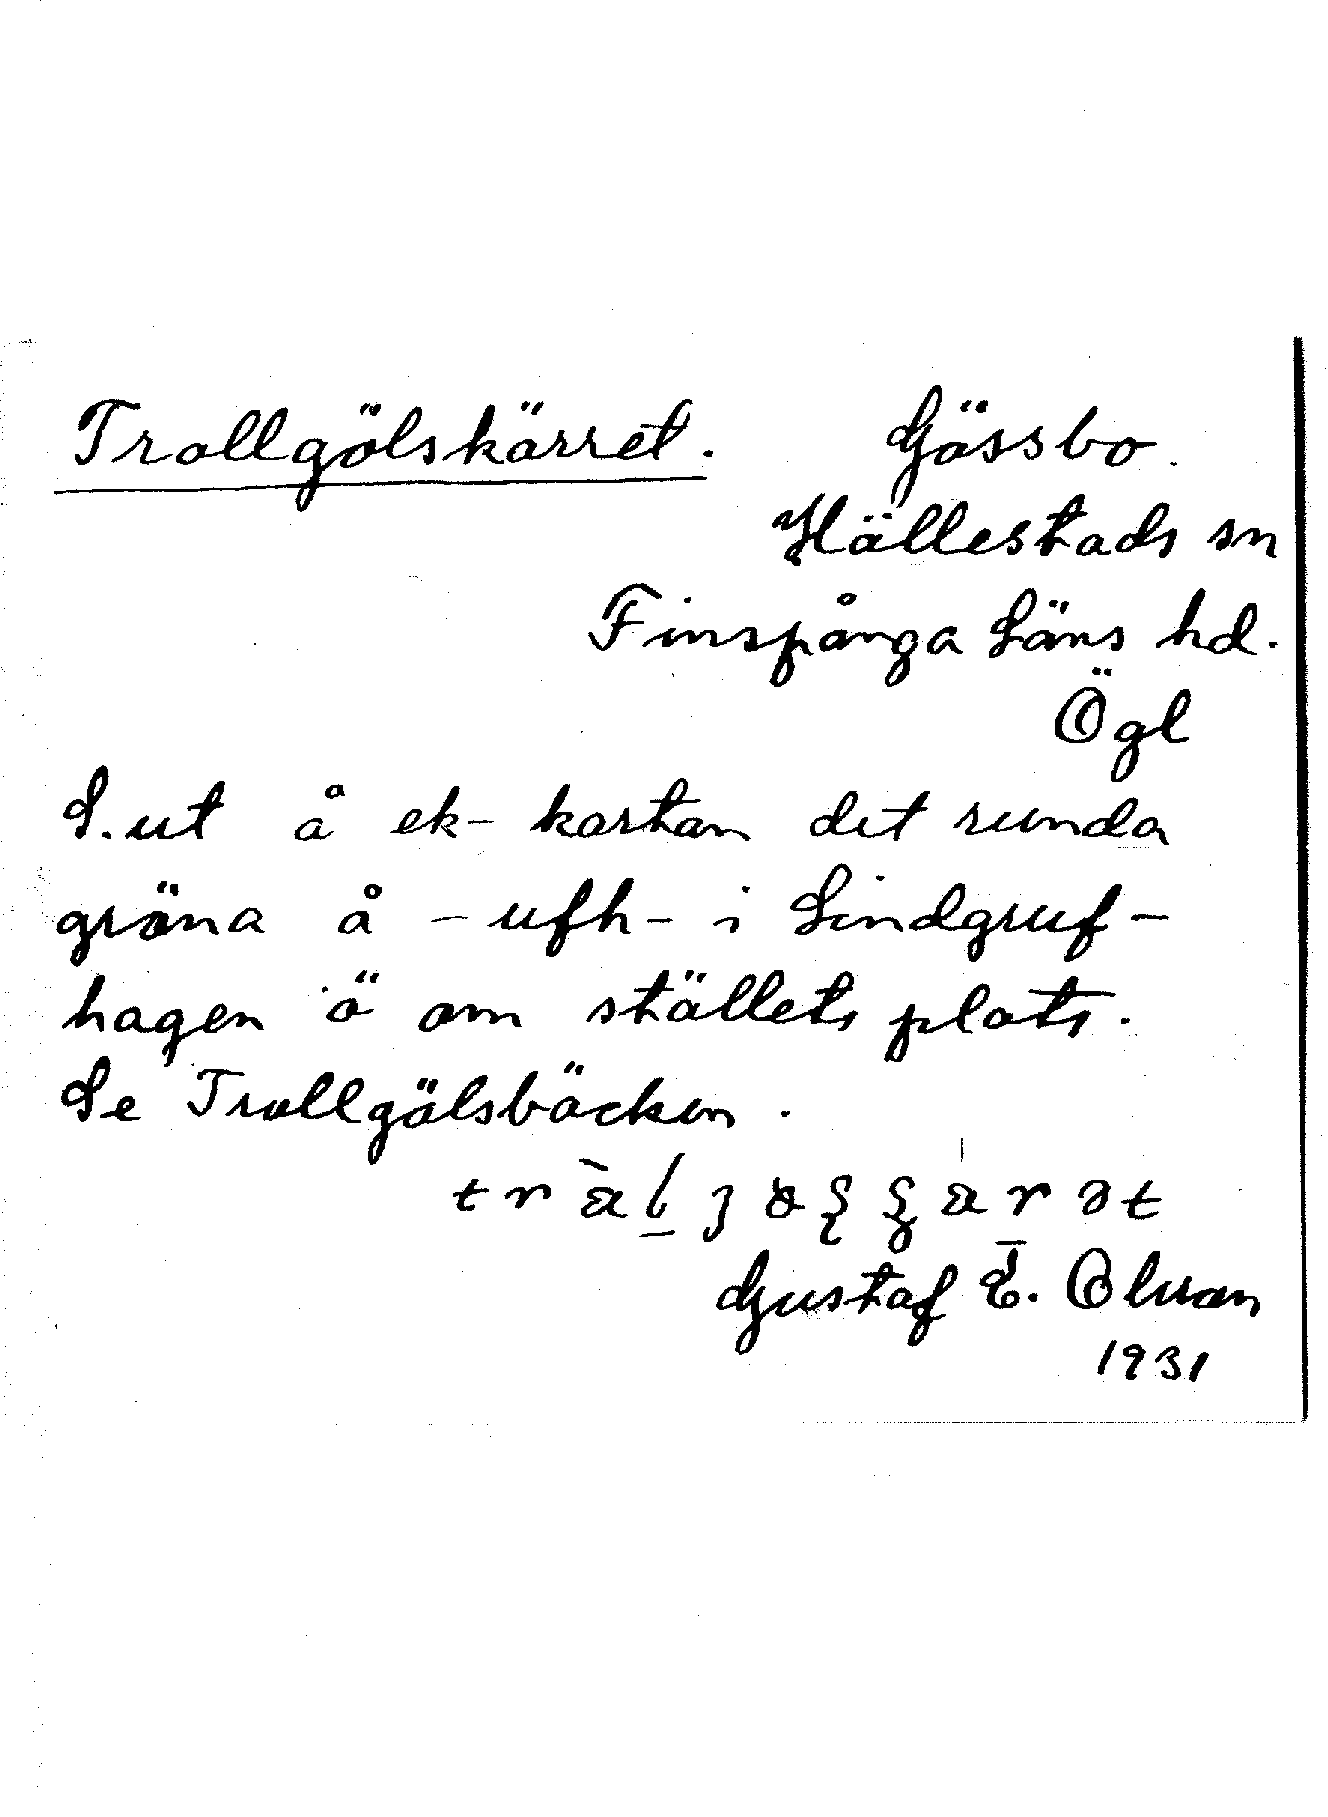 Trollgölskärret. Gössbo.
Hällestads sn
Finspånga Läns hd.
Ögl
S. ut å ek-kartan det runda
gröna å -ufh- i Lindgruf-
hagen ö om ställets plats.
Se Trollgölsbäcken.
Gustaf E. Olsson
1931